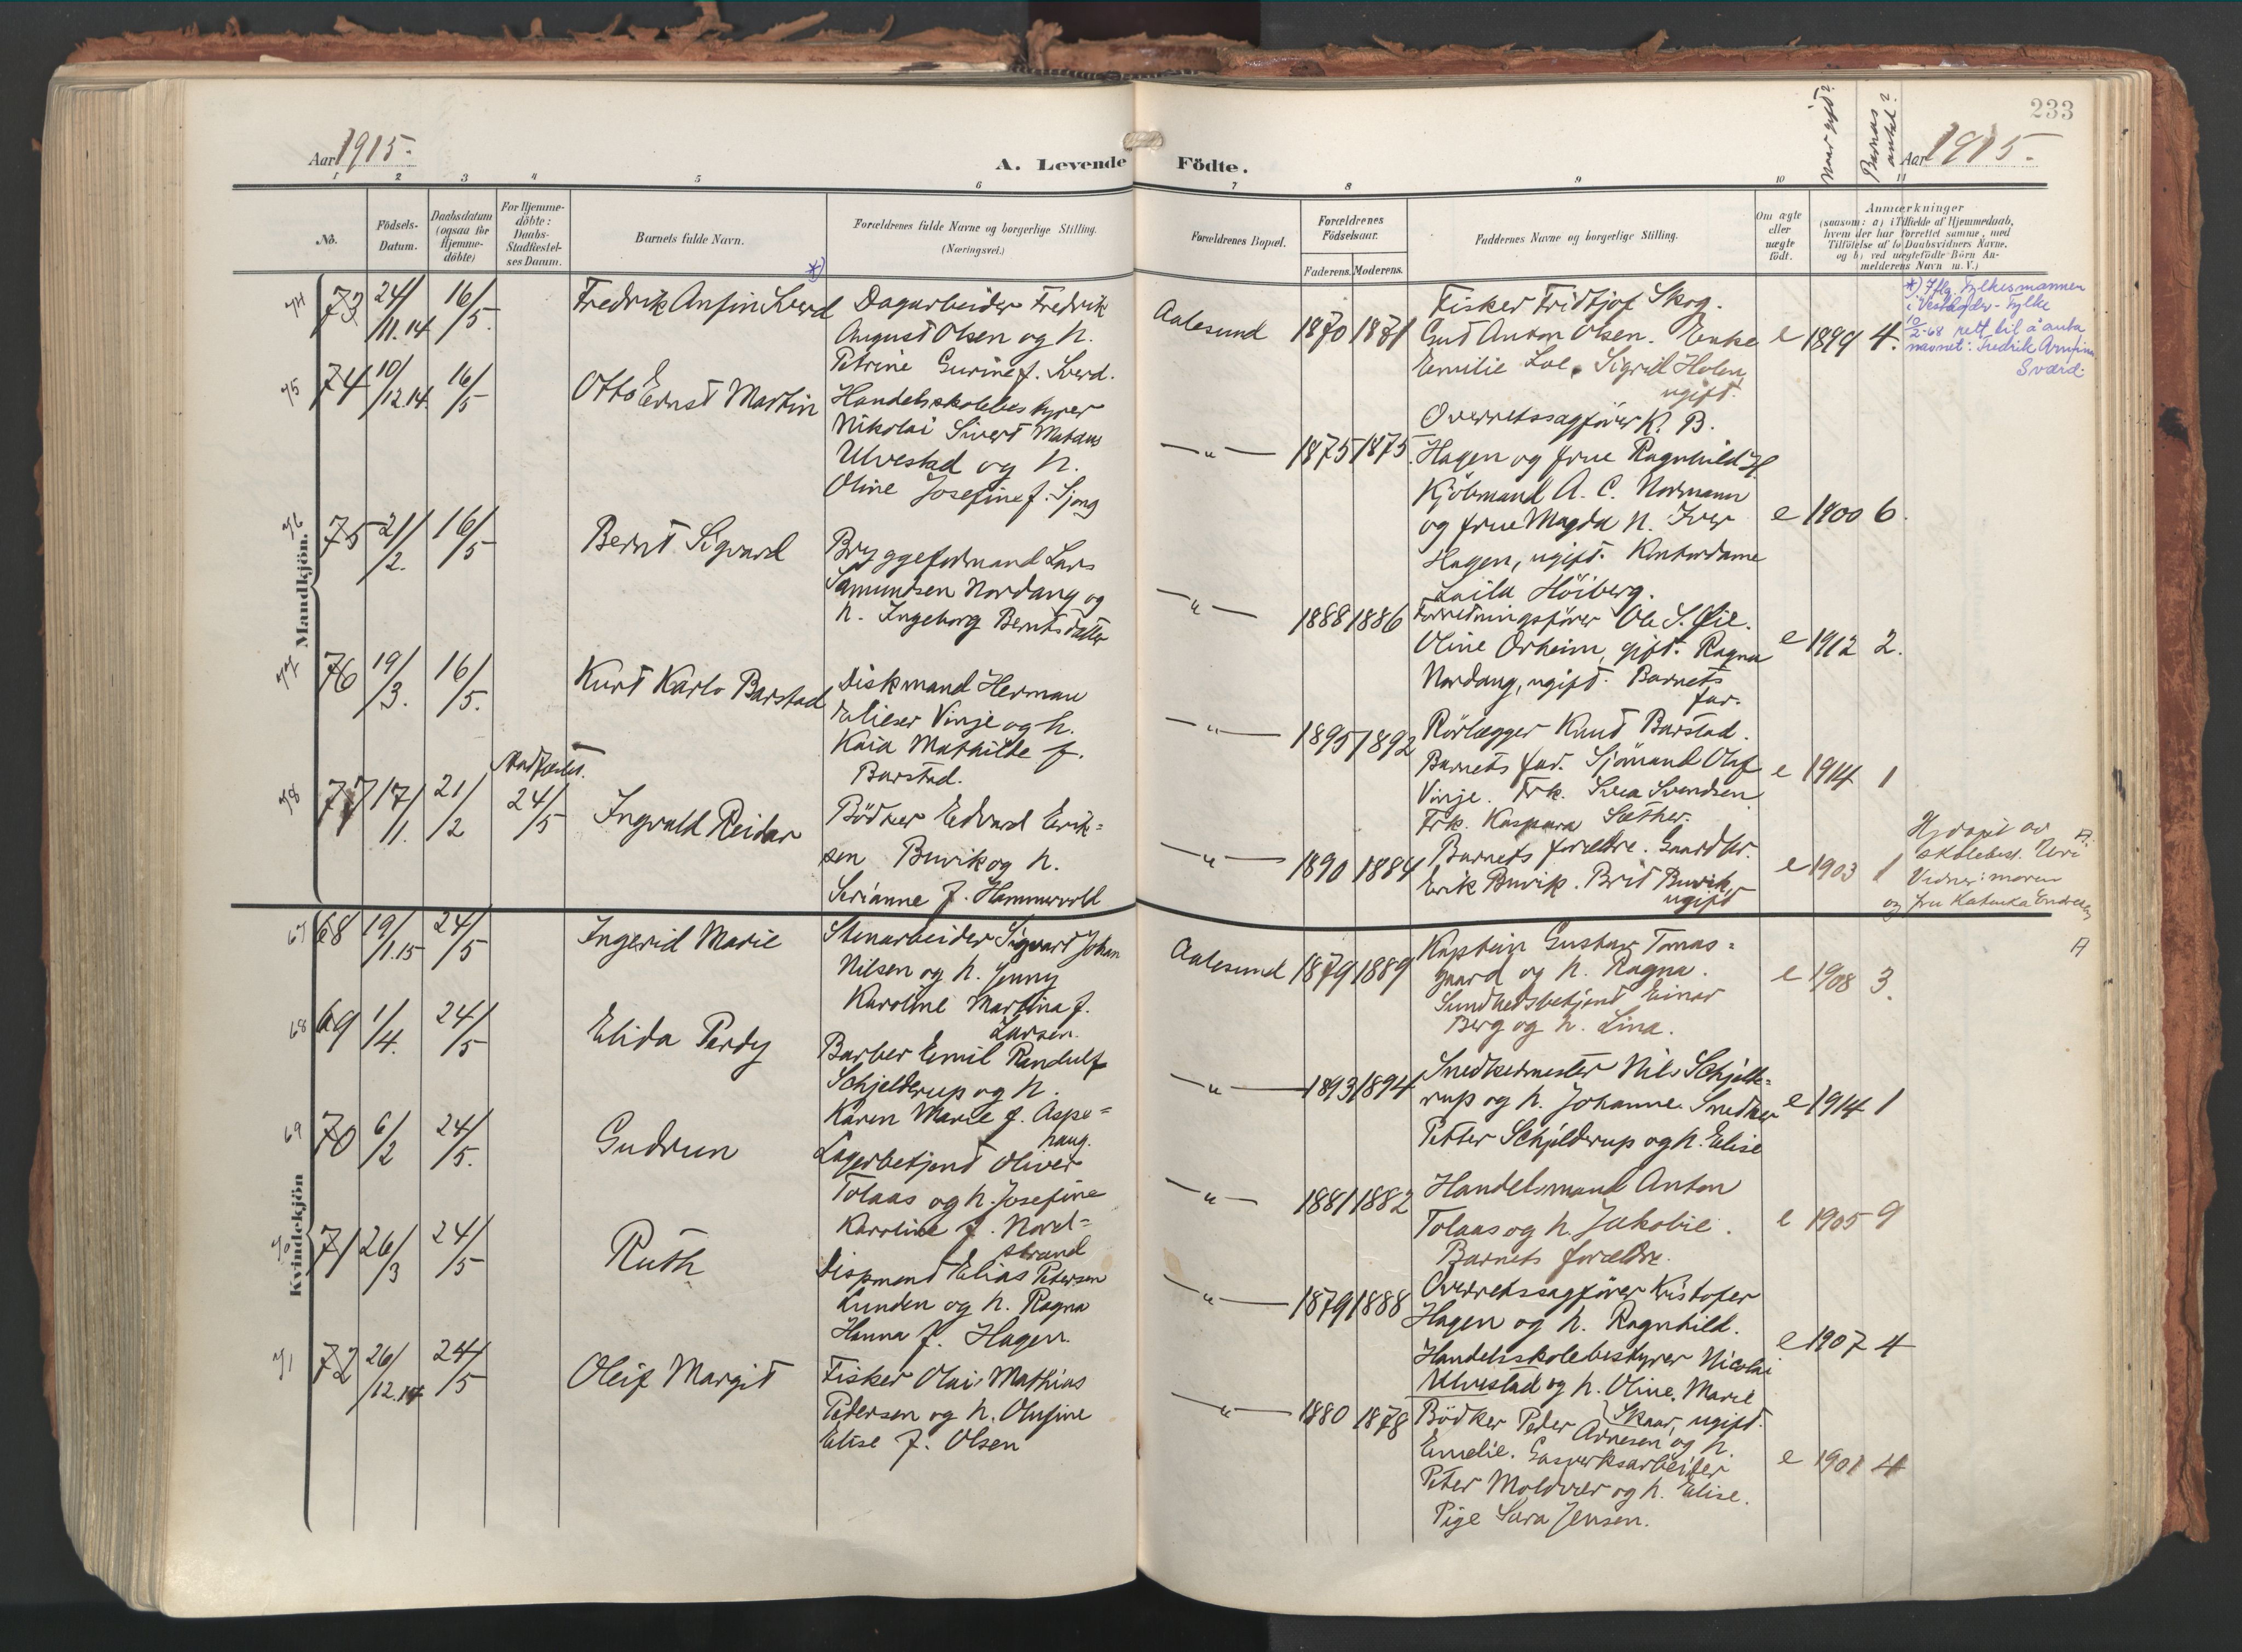 233
Naar gift?
Barnas antal?
Aar 1915.
A. Levende Födte.
Aar 1915.
1 2 3 4 5 6 7 8 9 10 11
No.
Födsels-Datum.
Daabsdatum (ogsaa for Hjemme-döbte)
For Hjemme-döbte: Daabs-Stadfæstel-ses Datum.
Barnets fulde Navn.
Forældrenes fulde Navne og borgerlige Stilling.
(Næringsvei.)
Forældrenes Bopæl.
Forældrenes Födselsaar.
Faderens. Moderens.
Faddernes Navne og borgerlige Stilling.
Om ægte eller uægte födt.
Anmærkninger
(saasom: a) i Tilfælde af Hjemmedaab,
hvem der har forrettet samme, med
Tilföielse af to Daabsvidners Navne.
og b) ved uægtefödte Börn An-
melderens Navn m. V.)
Mandkjön.
74 73 24/11.14 16/5. Fredrik Anfin Sverd *)
Dagarbeider Fredrik
August Olsen og h.
Petrine Gurine f. Sverd.
Aalesund 1870 1871
Fisker Fridtjof Skog.
Gut Anton Olsen. Enke
Emilie Loe. Sigrid Holen,
ugift.
e 1899 4.
*) Iflg. Fylkesmannen
i Vestagder-Fylke
10/2-68 rett til å anta
navnet: Fredrik Arnfinn
Sværd
75 74 10/12.14. 16/5 Otto Ernst Martin
Handelsskolebestyrer
Nikolai Sivert Mataus
Ulvestad og h.
Oline Josefine f. Sjong
—"— 1875 1875.
Overretssagförer K. B.
Hagen og frue Ragnhild H.
Kjöbmand A. C. Normann
og frue Magda N. Iver
Hagen, ugift. Kontordame
Laila Höiberg.
e 1900 6.
76 75 21/2. 16/5 Bernt Sigvard
Bryggeformand Lars
Samundsen Nordang og
h. Ingeborg Berntsdatter
—"— 1888 1886
Forretningsförer Ole S. Øie.
Oline Orheim, gift. Ragna
Nordang, ugift. Barnets
far.
e 1912 2.
77 76 19/3. 16/5. Kurt Karlo Barstad
Diskmand Herman
Elieser Vinje og h.
Kaia Mathilde f.
Barstad.
—"— 1895 1892
Rörlægger Knut Barstad.
Barnets far. Sjömand Oluf
Vinje. Frk. Svea Svendsen
Frk. Kaspara Sæther.
e 1914 1
78 77 17/1. 21/2 Stadfæstet. 24/5 Ingvald Reidar
Bödker Edvard Erik=
sen Buvik og h.
Serianne f. Hammervold
—"— 1890 1884
Barnets forældre. Gaardbr.
Erik Buvik. Brit Buvik,
ugift
e 1903 1
Hj.döpt av
skolebest.
Vidner: moren
og fru Katinka Endresen
A.
Kvindekjön
67 68 19/1.15 24/5 Ingerid Marie
Stenarbeider Sigvart Johan
Nilsen og h. Jenny
Karoline Martina f.
Larsen.
Aalesund 1879 1889
Kaptein Gustav Tomas=
gaard og h. Ragna.
Sundhedsbetjent Einar
Berg og h. Lina.
e 1908 3.
A
68 69 1/4. 24/5 Elida Perdy
Barber Emil Randulf
Schjelderup og h.
Karen Marie f. Aspe=
haug.
—"— 1893 1894
Snedkermester Nils Schjelde=
rup og h. Johanne. Snedker
Petter Schjelderup og h. Elise
e 1914 1
69 70 6/2 24/5. Gudrun
Lagerbetjent Oliver
Tolaas og h. Josefine
Karoline f. Nord=
strand
—"— 1881 1882
Handelsmand Anton
Tolaas og h. Jakobie.
Barnets forældre.
e 1905 9
70 71 26/3 24/5 Ruth
Dispment Elias Petersen
Lunden og h. Ragna
Hanna f. Hagen.
—"— 1879 1888
Overretssagförer Kristofer
Hagen og h. Ragnhild.
Handelsskolebestyrer Nicolai
Ulvestad og h. Oline. Marie
Skaar, ugift.
e 1907 4
71 72 26/12.14 24/5 Oleif Margit
Fisker Olai Mathias
Pedersen og h. Olufine
Elise f. Olsen
—"— 1880 1878
Bödker Peder Arnesen og h.
Emelie. Gasverksarbeider
Peter Moldvær og h. Elise.
Pige Sara Jensen.
e 1901 4